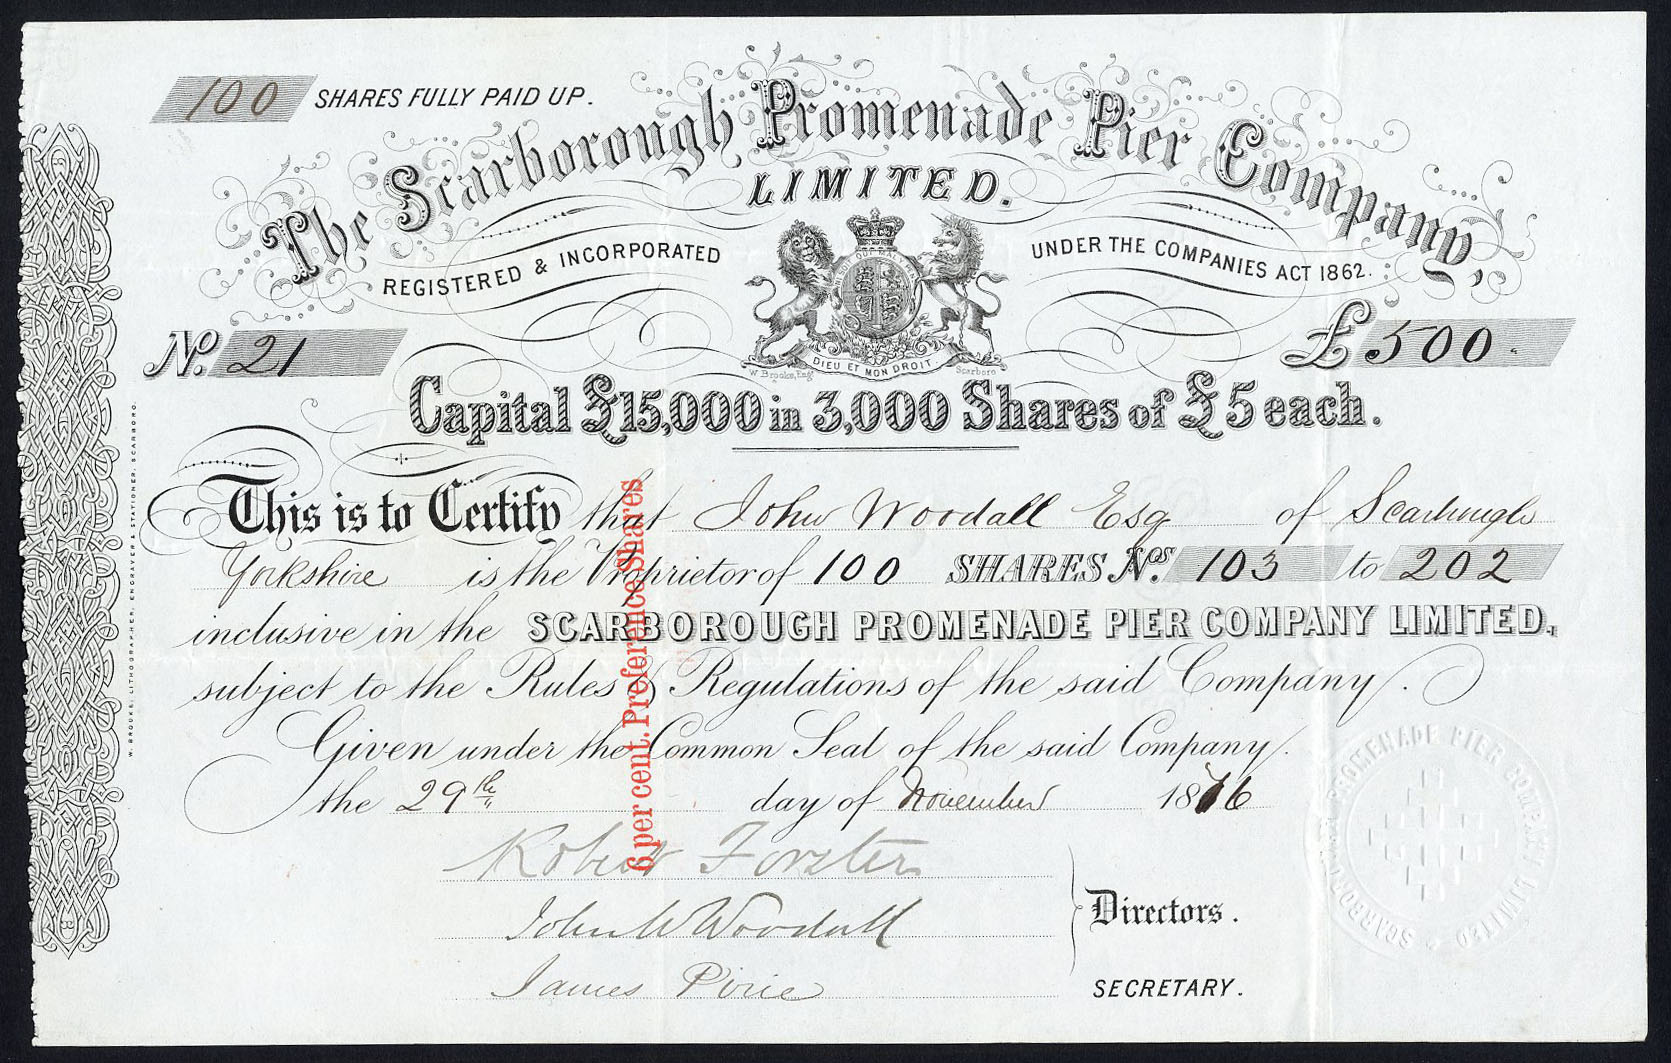 100 SHARES FULLY PAID UP.
The Scarborough Promenade Pier Company,
LIMITED.
REGISTERED & INCORPORATED UNDER THE COMPANIES ACT 1862.
DIEU ET MON DROIT
W. Brooke, Eng. Scarboro
No. 21 £500
Capital £15,000 in 3,000 Shares of £5 each.
This is to Certify that John Woodall Esq of Scarbrough
Yorkshire is the Proprietor of 100 SHARES Nos. 103 to 202
inclusive in the SCARBOROUGH PROMENADE PIER COMPANY LIMITED,
subject to the Rules & Regulations of the said Company.
Given under the Common Seal of the said Company.
the 29th day of November 1876
6 per cent. Preference Shares
Robert Forster
John W Woodall
Directors.
James Pirie
SECRETARY.
SCARBOROUGH PROMENADE PIER COMPANY LIMITED
W. BROOKE, LITHOGRAPHER, ENGRAVER & STATIONER, SCARBORO.